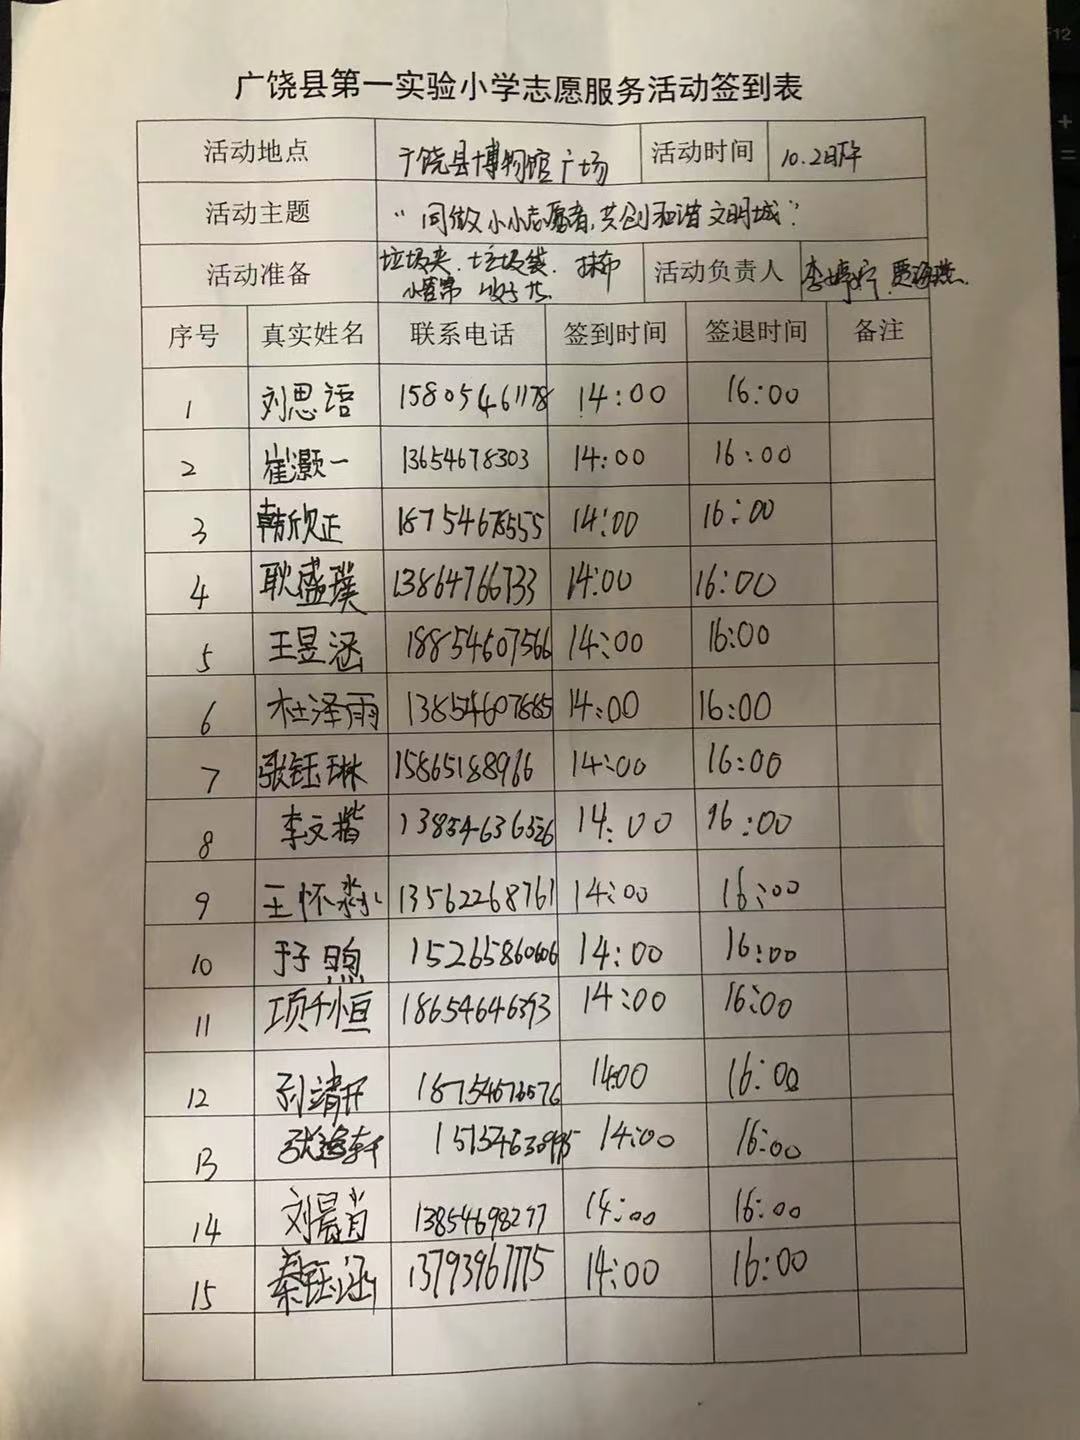 广饶县第一实验小学志愿服务活动签到表
活动地点 广饶县博物馆广场 活动时间 10.2日下午
活动主题 “同做小小志愿者,共创和谐文明城”
活动准备 垃圾夹、垃圾袋、抹布 活动负责人 李婷婷
序号 真实姓名 联系电话 签到时间 签退时间 备注
1 刘思语 15805461178 14:00 16:00
2 崔灏一 13654678303 14:00 16:00
3 韩欣正 18754678555 14:00 16:00
4 耿盛璞 13864766733 14:00 16:00
5 王昱涵 18854607566 14:00 16:00
6 杜泽雨 14:00 16:00
7 张钰琳 15865188966 14:00 16:00
8 李文楷 13854636326 14:00 16:00
9 王怀淼 13562268761 14:00 16:00
10 于子煦 15265860606 14:00 16:00
11 项千恒 18654646393 14:00 16:00
12 孙靖开 18754676576 14:00 16:00
13 张逸轩 14:00 16:00
14 刘晨肖 13854698277 14:00 16:00
15 秦钰涵 13793967775 14:00 16:00
F12
+
=